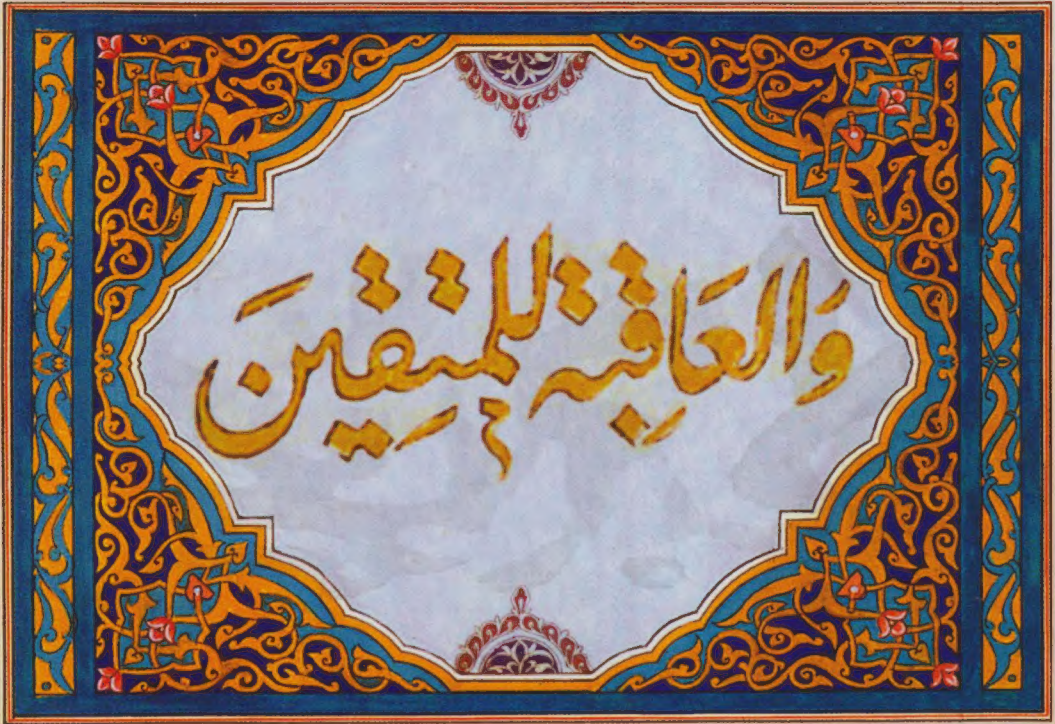 وَالعَاقِبة للمتقِينَ